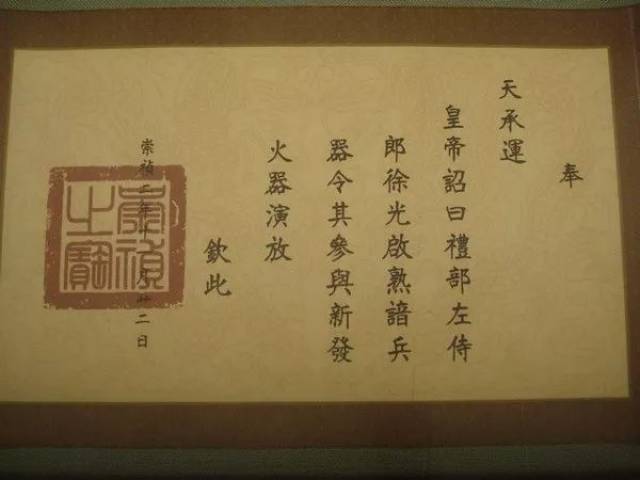 奉
天承運
皇帝詔曰禮部左侍
郎徐光啟熟諳兵
器令其參與新發
火器演放
欽此
崇禎二年十一月廿二日
崇禎之寶